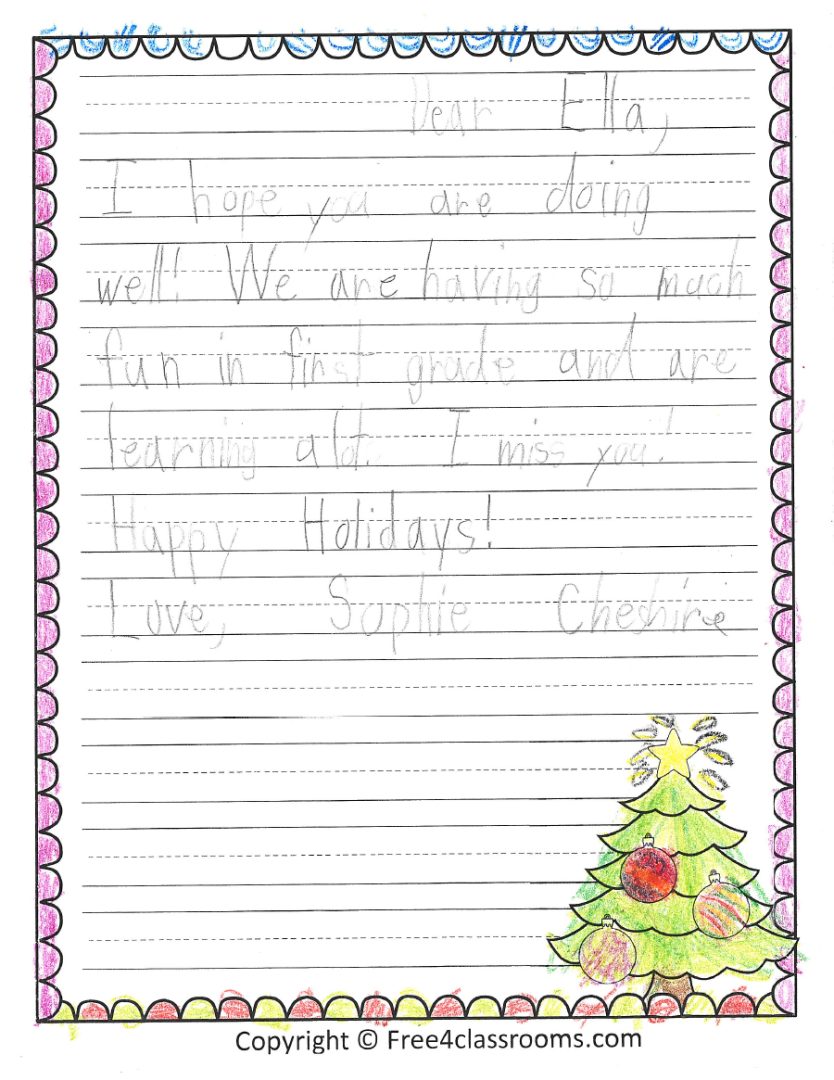 Dear Ella,
I hope you are doing
well! We are having so much
fun in first grade and are
learning a lot. I miss you!
Happy Holidays!
Love, Sophie Cheshire
Copyright © Free4classrooms.com